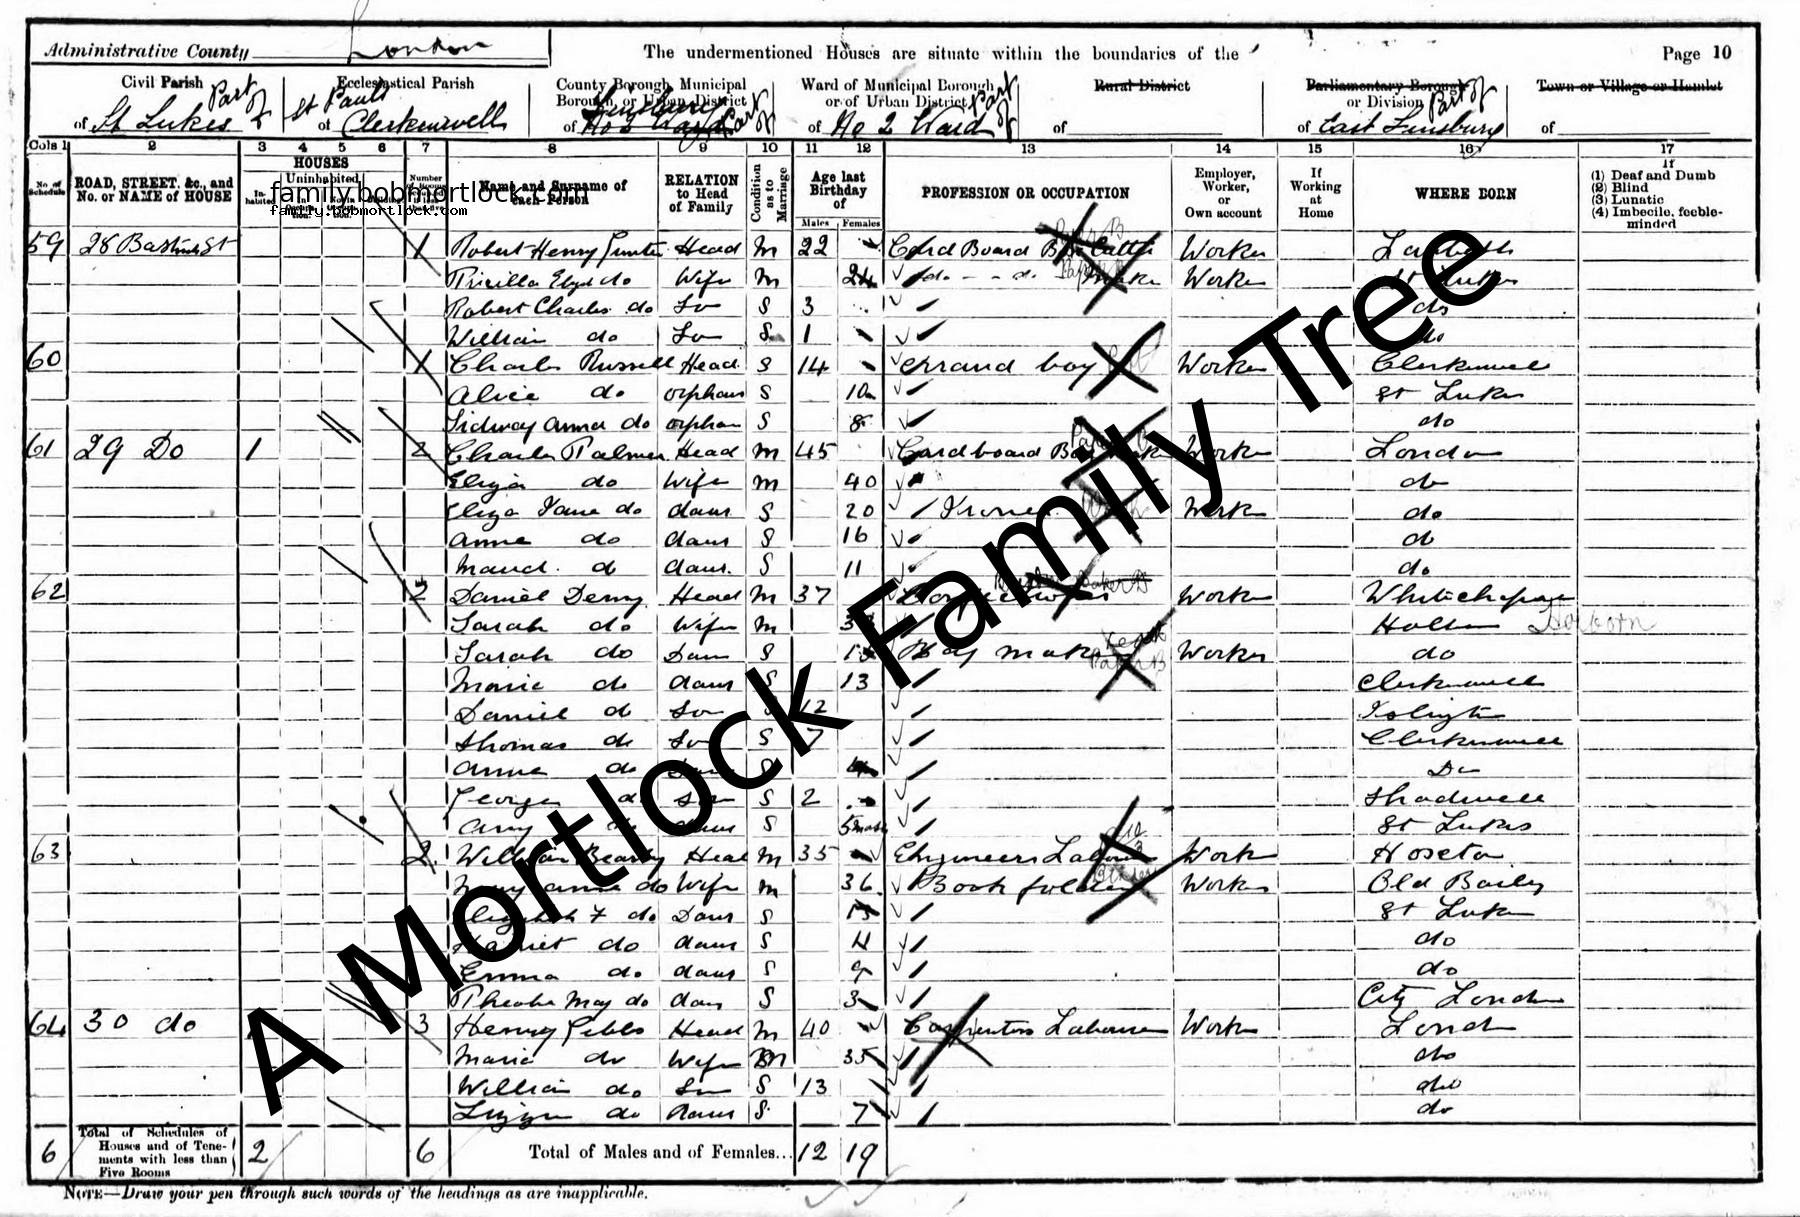 Administrative County London The undermentioned Houses are situate within the boundaries of the Page 10
Civil Parish Ecclesiastical Parish County Borough, Municipal Borough, or Urban District Ward of Municipal Borough or of Urban District Rural District Parliamentary Borough or Division Town or Village or Hamlet
of St Lukes Part of St Pauls of Clerkenwell of Finsbury No 2 Ward Part of of No 2 Ward Part of of of East Finsbury Part of of
Cols 1 2 3 4 5 6 7 8 9 10 11 12 13 14 15 16 17
No. of Schedule ROAD, STREET, &c., and No. or NAME of HOUSE HOUSES Inhabited Uninhabited Number Name and Surname of each Person RELATION to Head of Family Condition as to Marriage Age last Birthday of Males Females PROFESSION OR OCCUPATION Employer, Worker, or Own account If Working at Home WHERE BORN If (1) Deaf and Dumb (2) Blind (3) Lunatic (4) Imbecile, feeble-minded
family.bobmortlock.com
family.bobmortlock.com
59 28 Bastwick St 1 Robert Henry Head M 22 Card Board Box Worker Lambeth
do Wife M 24 do do Maker Worker St Lukes
Robert Charles do Son S 3 do
William do Son S 1 do
60 1 Charles Russell Head S 14 Errand boy Worker Clerkenwell
Alice do orphan S 10 St Lukes
Anna do orphan S 8 do
61 29 Do 1 2 Charles Palmer Head M 45 Cardboard Box Worker London
Eliza do Wife M 40 do
Eliza Jane do daur S 20 Ironer Worker do
Anna do daur S 16 do
Maud do daur S 11 do
62 2 Daniel Denny Head M 37 Worker Whitechapel
Sarah do Wife M Holborn Holborn
Sarah do Daur S Bag maker Worker do
Marie do daur S 13 Clerkenwell
Daniel do Son S 12 Islington
Thomas do Son S 7 Clerkenwell
Anna do S 4 Do
George do Son S 2 Shadwell
Amy daur S 5 mos St Lukes
63 2 William Head M 35 Engineers Labourer Worker Hoxton
Mary Anna do Wife M 36 Book folder Worker Old Bailey
Elizabeth F do Daur S St Lukes
Harriet do daur S 11 do
Emma do daur S 9 do
Pheobe May do daur S 3 City London
64 30 do 3 Henry Gibbs Head M 40 Carpenters Labourer Worker London
Maria do Wife M 35 do
William do Son S 13 do
Lizzie do daur S 7 do
6 Total of Schedules of Houses and of Tenements with less than Five Rooms 2 6 Total of Males and of Females... 12 19
NOTE—Draw your pen through such words of the headings as are inapplicable.
A Mortlock Family Tree